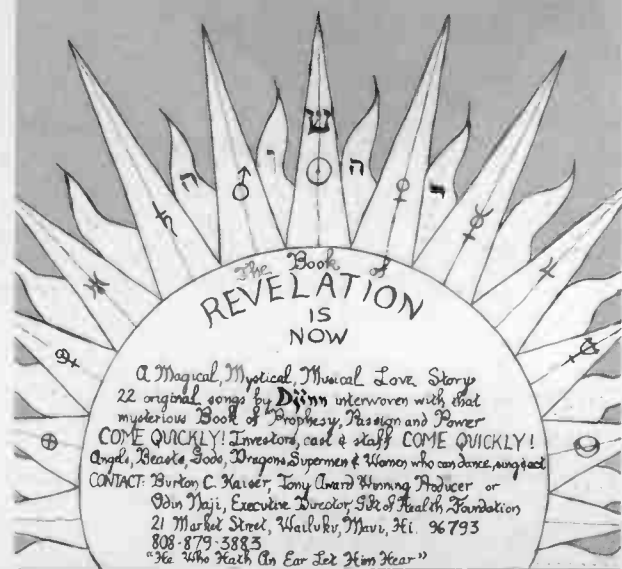 ש
ה י ה ו
The Book of
REVELATION
IS
NOW
A Magical, Mystical, Musical Love Story
22 original songs by Djinn interwoven with that
mysterious Book of Prophesy, Passion and Power
COME QUICKLY! Investors, cast & staff COME QUICKLY!
Angels, Beasts, Gods, Dragons, Supermen & Women who can dance, sing & act
CONTACT: Burton C. Kaiser, Tony Award Winning Producer or
Odin Naji, Executive Director, Gift of Health Foundation
21 Market Street, Wailuku, Maui, Hi. 96793
808-879-3883
"He Who Hath An Ear Let Him Hear"